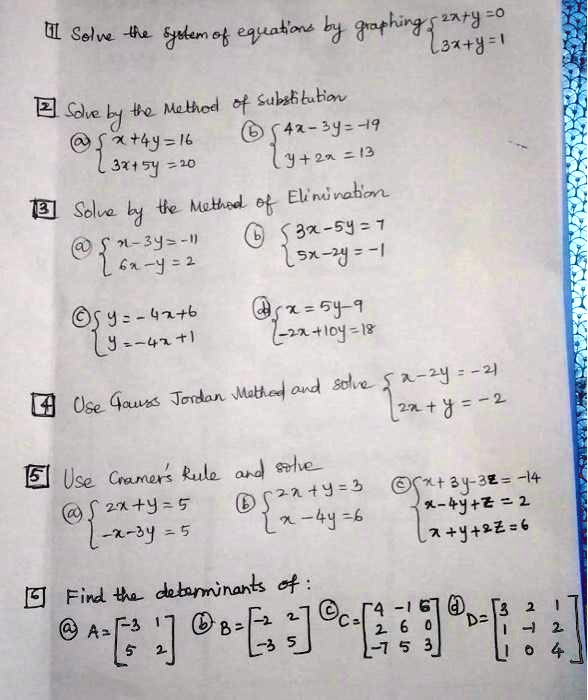 1 Solve the System of equations by graphing { 2x+y=0
3x+y=1
2 Solve by the Method of Substitution
ⓐ { x+4y=16
3x+5y=20
ⓑ { 4x-3y=-19
y+2x=13
3 Solve by the Method of Elimination
ⓐ { x-3y=-11
6x-y=2
ⓑ { 3x-5y=7
5x-2y=-1
ⓒ { y=-4x+6
y=-4x+1
ⓓ { x=5y-9
-2x+10y=18
4 Use Gauss Jordan Method and solve { x-2y=-21
2x+y=-2
5 Use Cramer's Rule and solve
ⓐ { 2x+y=5
-x-3y=5
ⓑ { 2x+y=3
x-4y=6
ⓒ { x+3y-3z=-14
x-4y+z=2
x+y+2z=6
6 Find the determinants of :
ⓐ A=[-3 1
5 2]
ⓑ B=[-2 2
-3 5]
ⓒ C=[4 -1 6
2 6 0
-7 5 3]
ⓓ D=[3 2 1
1 -1 2
1 0 4]